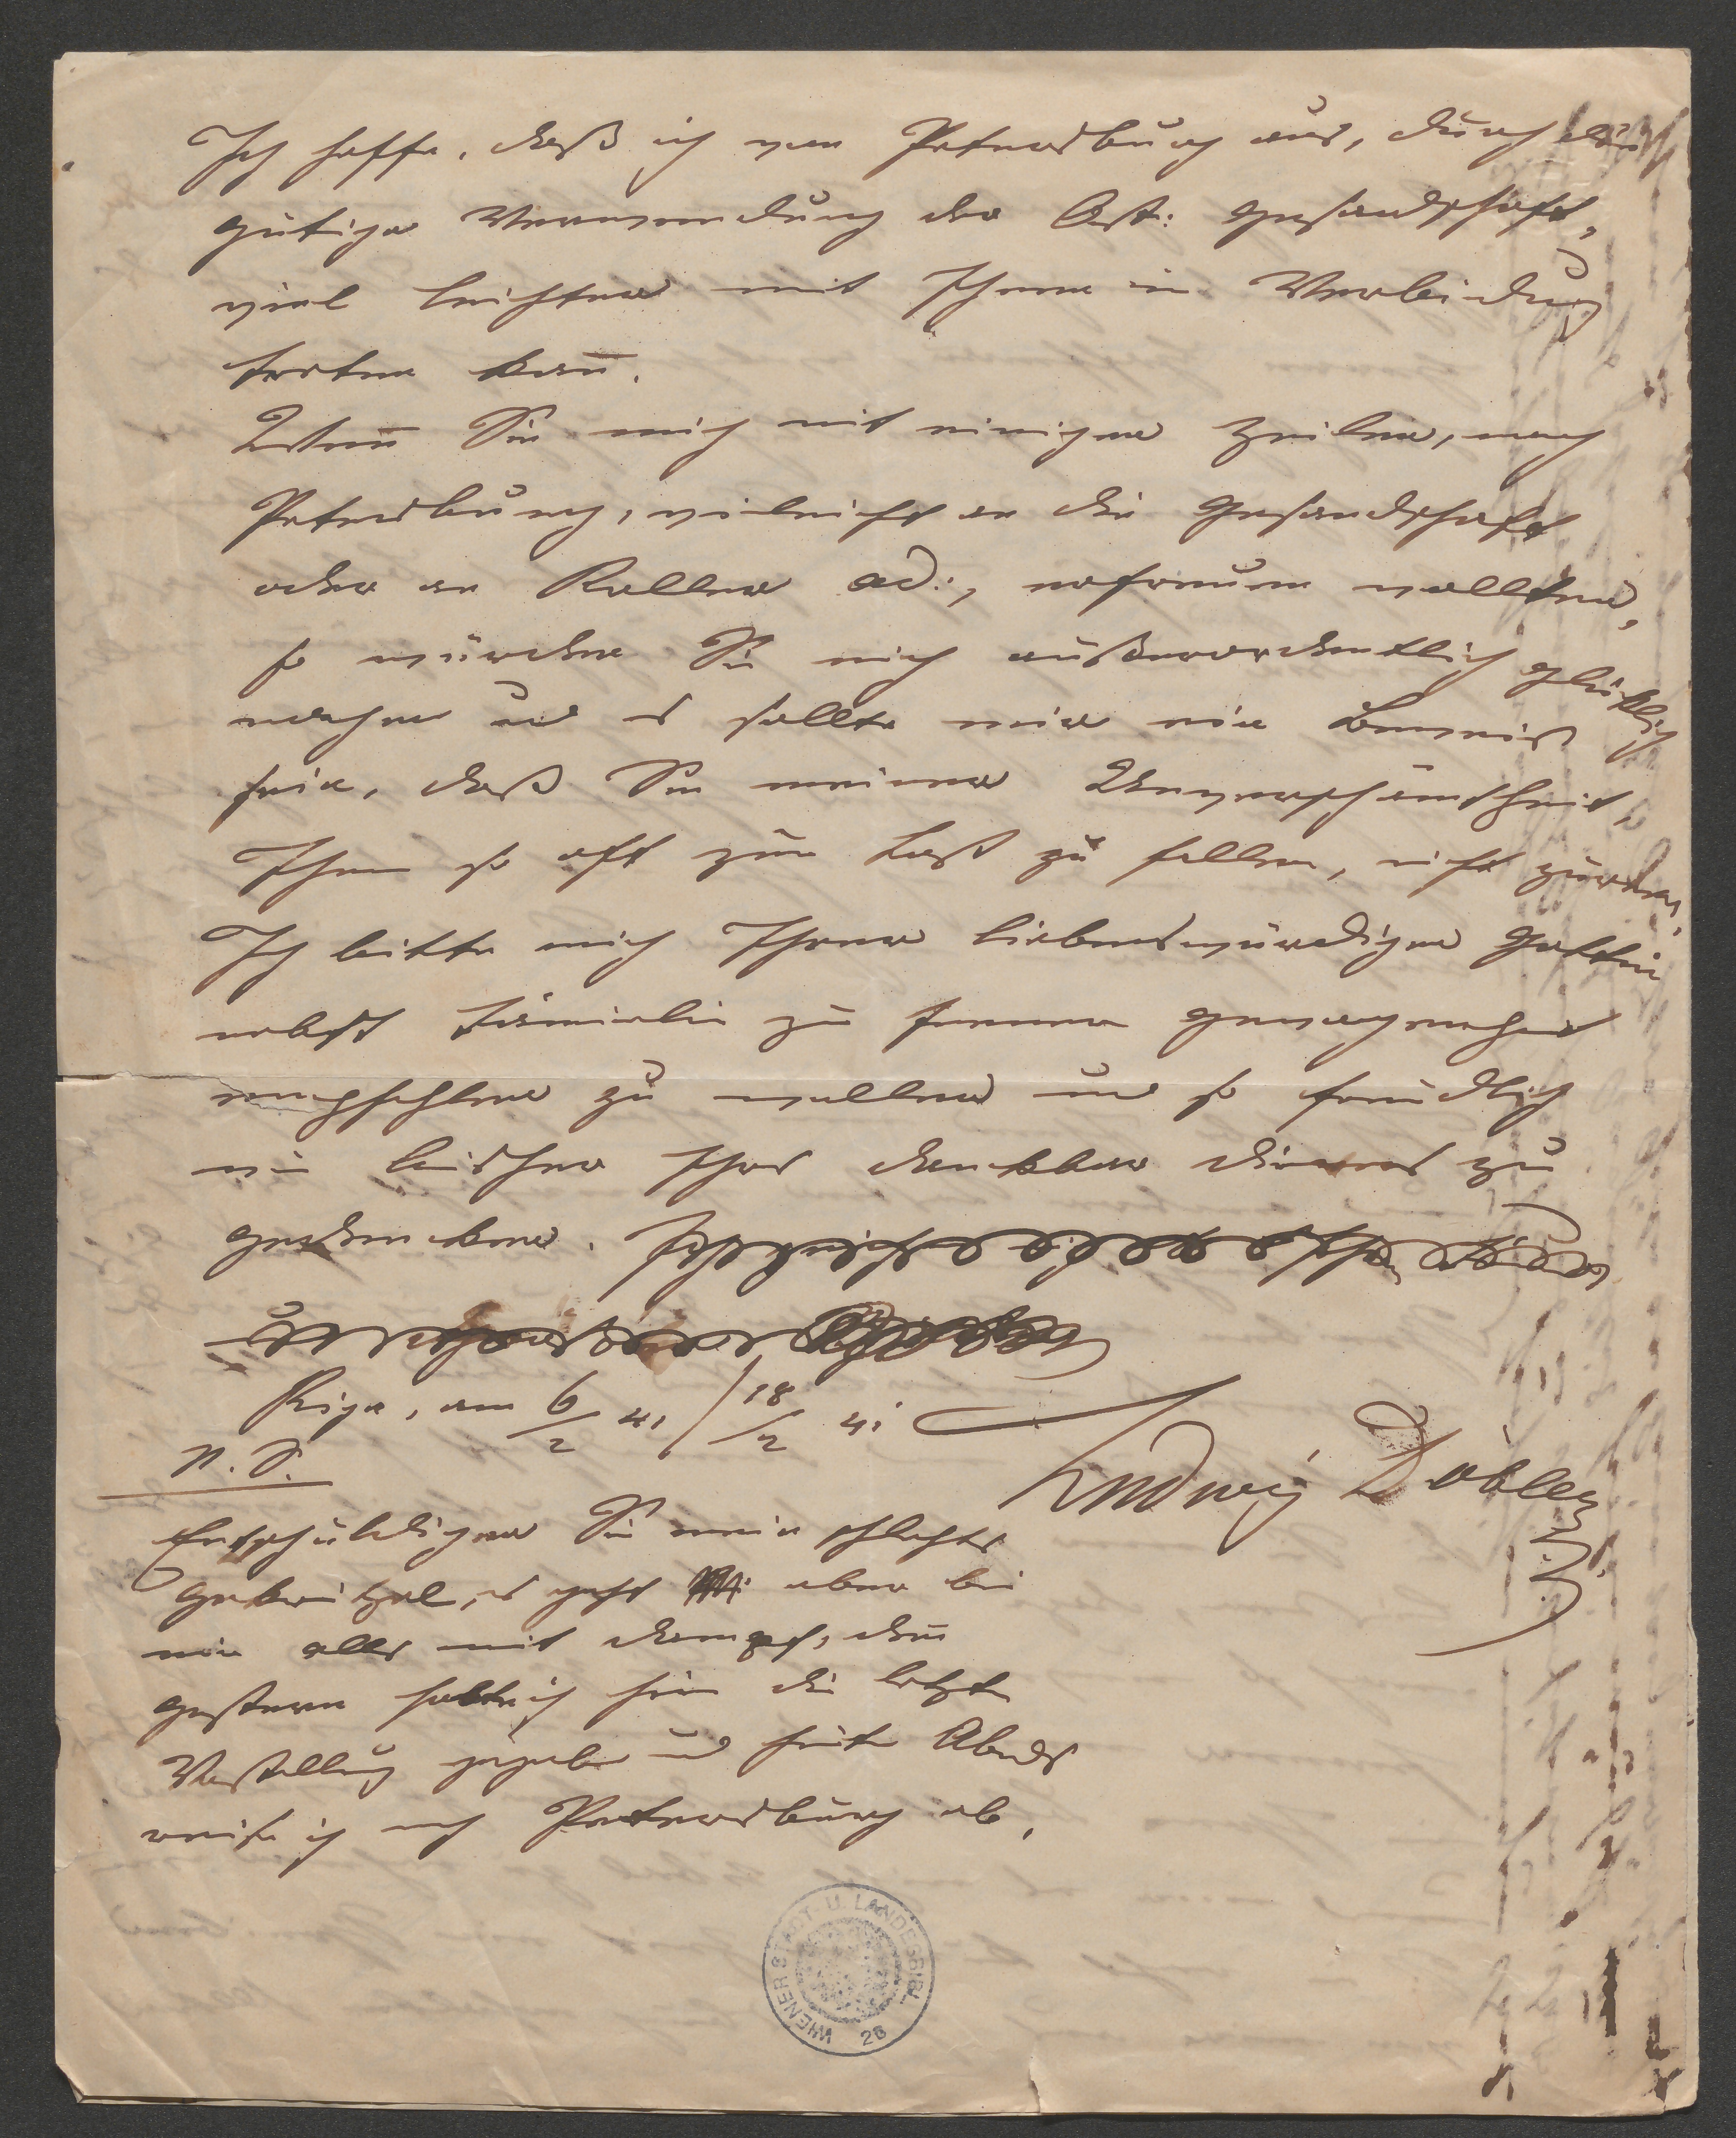 Ich hoffe, daß ich von Petersburg aus, durch die
gütige Verwendung der Östr: Gesandschaft,
viel leichter mit Ihnen in Verbindung
treten kan̄.
Wen̄ Sie mich mit einigen Zeilen, nach
Petersburg, vieleicht an die Gesandschaft
oder an Roller ad:, erfreuen wollten,
so würden Sie mich außerordentlich glücklich
machen und es sollte mir ein Beweis
sein, daß Sie meiner Unverschämtheit,
Ihnen so oft zur Last zu fallen, nicht zürnen.
Ich bitte mich Ihrer liebenswürdigen Gattin
nebst Familie zu fernern Gewogenheit
empfehlen zu wollen und so freundlich
wie bisher Ihres dankbar Dieners zu
gedenken.
Riga, am 6/2 41 / 18/2 41
Ludwig Döbler
N.S.
Entschuldigen Sie mein schlechtes
Gekritzel, es geht aber bei
mir alles mit Dampf, den̄
gestern habe ich hier die letzte
Vorstellung gegeben und heute Abends
reise ich nach Petersburg ab.
WIENER STADT- U. LANDESBIBL.
26